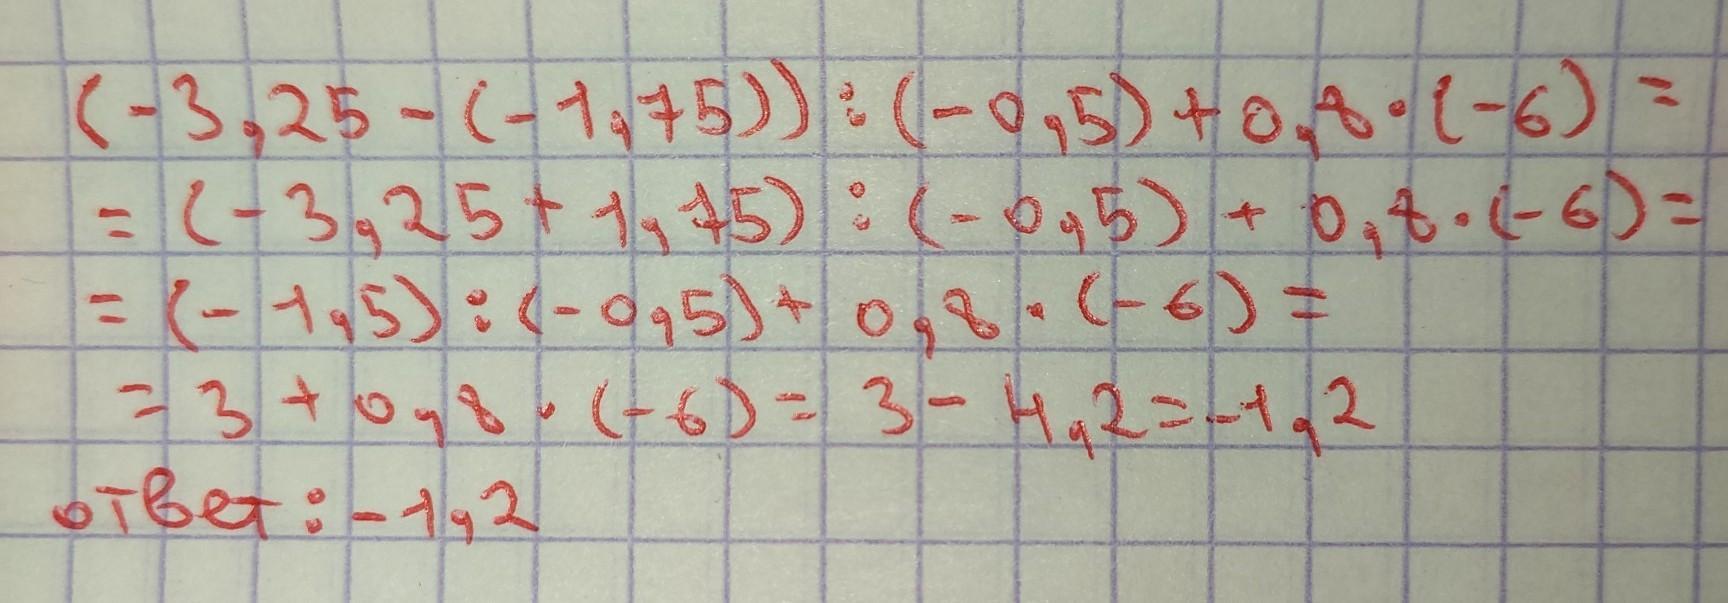 (-3,25-(-1,75)):(-0,5)+0,8·(-6)=
=(-3,25+1,75):(-0,5)+0,8·(-6)=
=(-1,5):(-0,5)+0,8·(-6)=
=3+0,8·(-6)=3-4,2=-1,2
ответ:-1,2